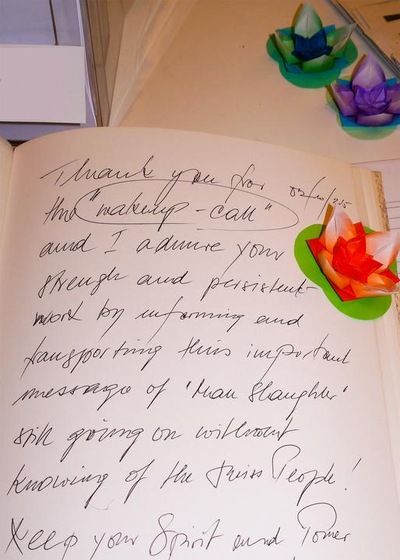 Thank you for
the "wakeup - call"
and I admire your
strengh and persistent
work by informing and
transporting this important
message of 'Man Slaughter'
still going on without
knowing of the Swiss People!
Keep your Spirit and Power